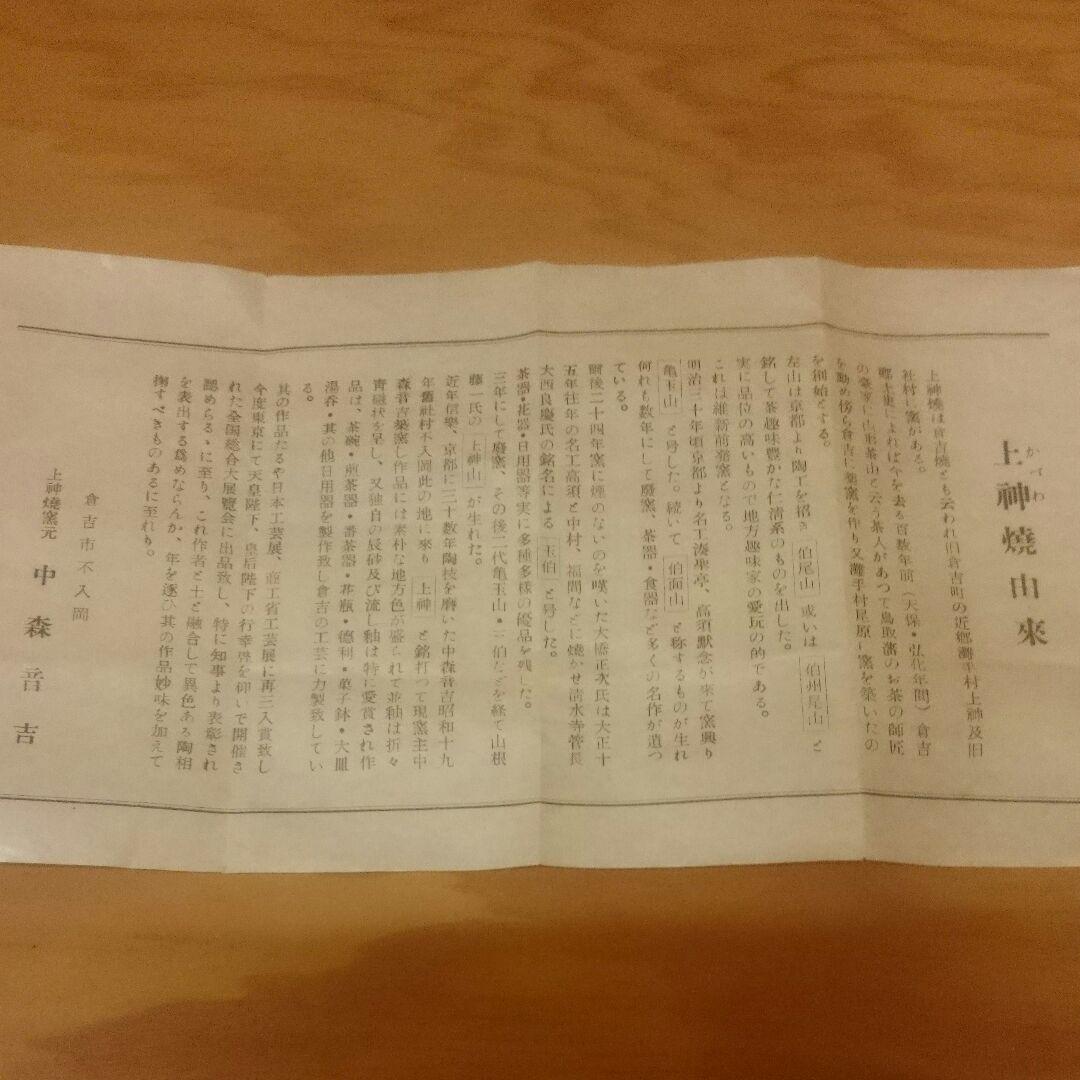 かずわ
上神燒由來
上神燒は倉吉燒とも云われ旧倉吉町の近郷灘手村上神及旧
社村に窯がある。
郷土史によれば今を去る百数年前(天保・弘化年間)倉吉
の豪家に山形茶山と云う茶人があつて鳥取藩のお茶の師匠
を勤め傍ら倉吉に築窯を作り又灘手村尾原に窯を築いたの
を創始とする。
左山は京都より陶工を招き 伯尾山 或いは 伯州尾山 と
銘して茶趣味豊かな仁清系のものを出した。
実に品位の高いもので地方趣味家の愛玩の的である。
これは維新前廃窯となる。
明治三十年頃京都より名工湊聖亭、高須默念が来て窯興り
亀玉山 と号した。続いて 伯面山 と称するものが生れ
何れも数年にして廢窯、茶器・食器など多くの名作が遺つ
ている。
爾後二十四年窯に煙のないのを嘆いた大橋正次氏は大正十
五年往年の名工高須と中村、福間などに燒かせ清水寺管長
大西良慶氏の銘名による 玉伯 と号した。
茶器・花器・日用器等実に多種多様の優品を残した。
三年にして廢窯、その後二代亀玉山・ 伯などを経て山根
藤一氏の 上神山 が生れた。
近年信樂、京都に三十数年陶技を磨いた中森音吉昭和十九
年舊社村不入岡此の地に來り 上神 と銘打つて現窯主中
森音吉築窯し作品には素朴な地方色が盛られて並釉は折々
青磁狀を呈し、又独自の辰砂及び流し釉は特に愛賞され作
品は、茶碗・煎茶器・番茶器・花瓶・徳利・菓子鉢・大皿
湯呑・其の他日用器を製作致し倉吉の工芸に力製致してい
る。
其の作品たるや日本工芸展、商工省工芸展に再三入賞致し
今度東京にて天皇陛下、皇后陛下の行幸啓を仰いで開催さ
れた全国総合大展覧会に出品致し、特に知事より表彰され
認めらるゝに至り、これ作者と土と融合して異色ある陶相
を表出する爲めならんか、年を逐ひ其の作品妙味を加えて
掬すべきものあるに至れり。
倉吉市不入岡
上神燒窯元 中森音吉